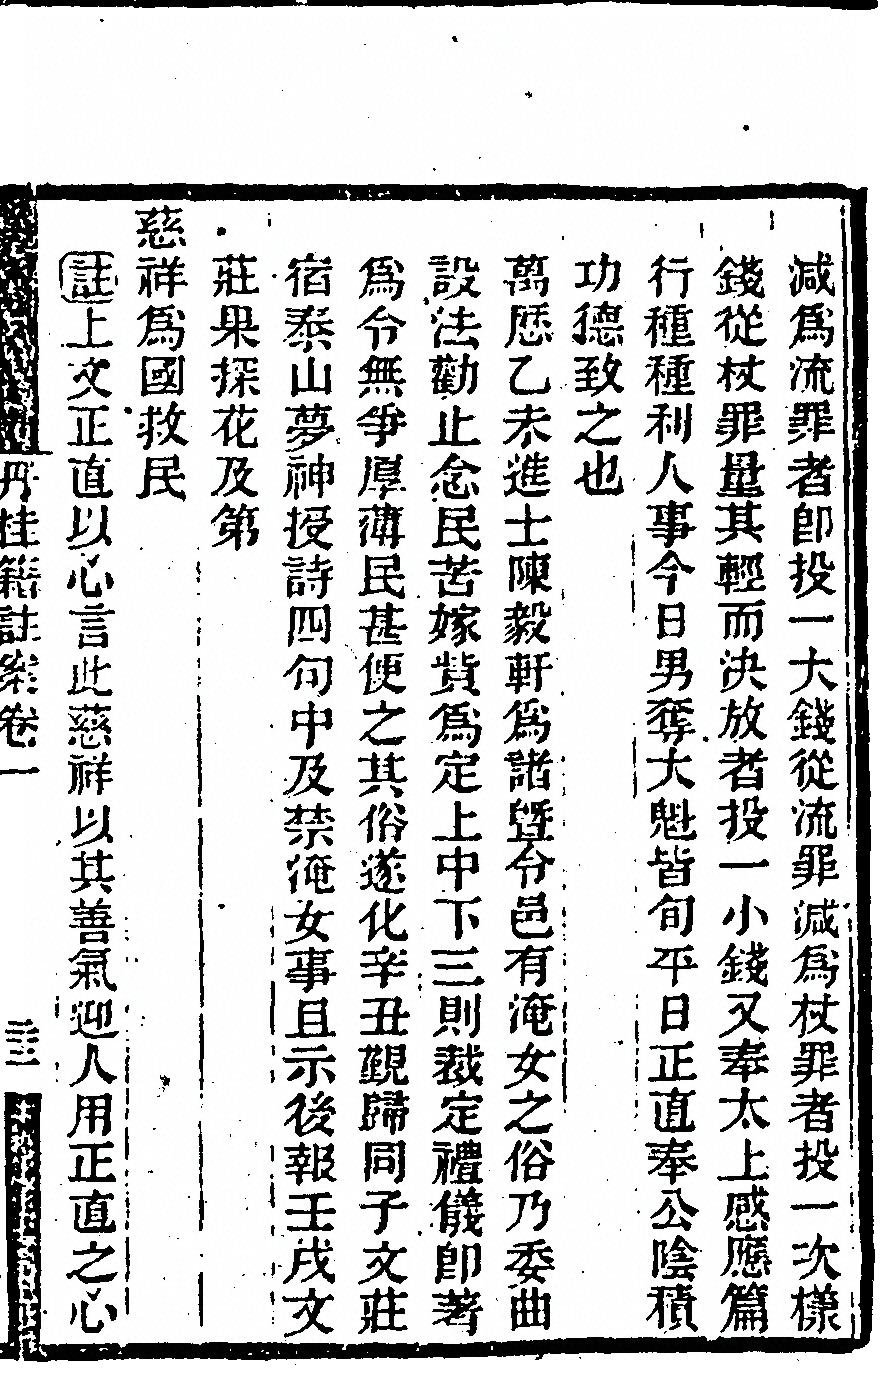 減爲流罪者卽投一大錢從流罪減爲杖罪者投一次樣
錢從杖罪量其輕而決放者投一小錢又奉太上感應篇
行種種利人事今日男奪大魁皆旬平日正直奉公陰積
功德致之也
萬歷乙未進士陳毅軒爲諸曁令邑有淹女之俗乃委曲
設法勸止念民苦嫁貲爲定上中下三則裁定禮儀卽著
爲令無爭厚薄民甚便之其俗遂化辛丑覲歸同子文莊
宿泰山夢神授詩四句中及禁淹女事且示後報壬戌文
莊果探花及第
慈祥爲國救民
註上文正直以心言此慈祥以其善氣迎人用正直之心
丹桂籍註案卷一